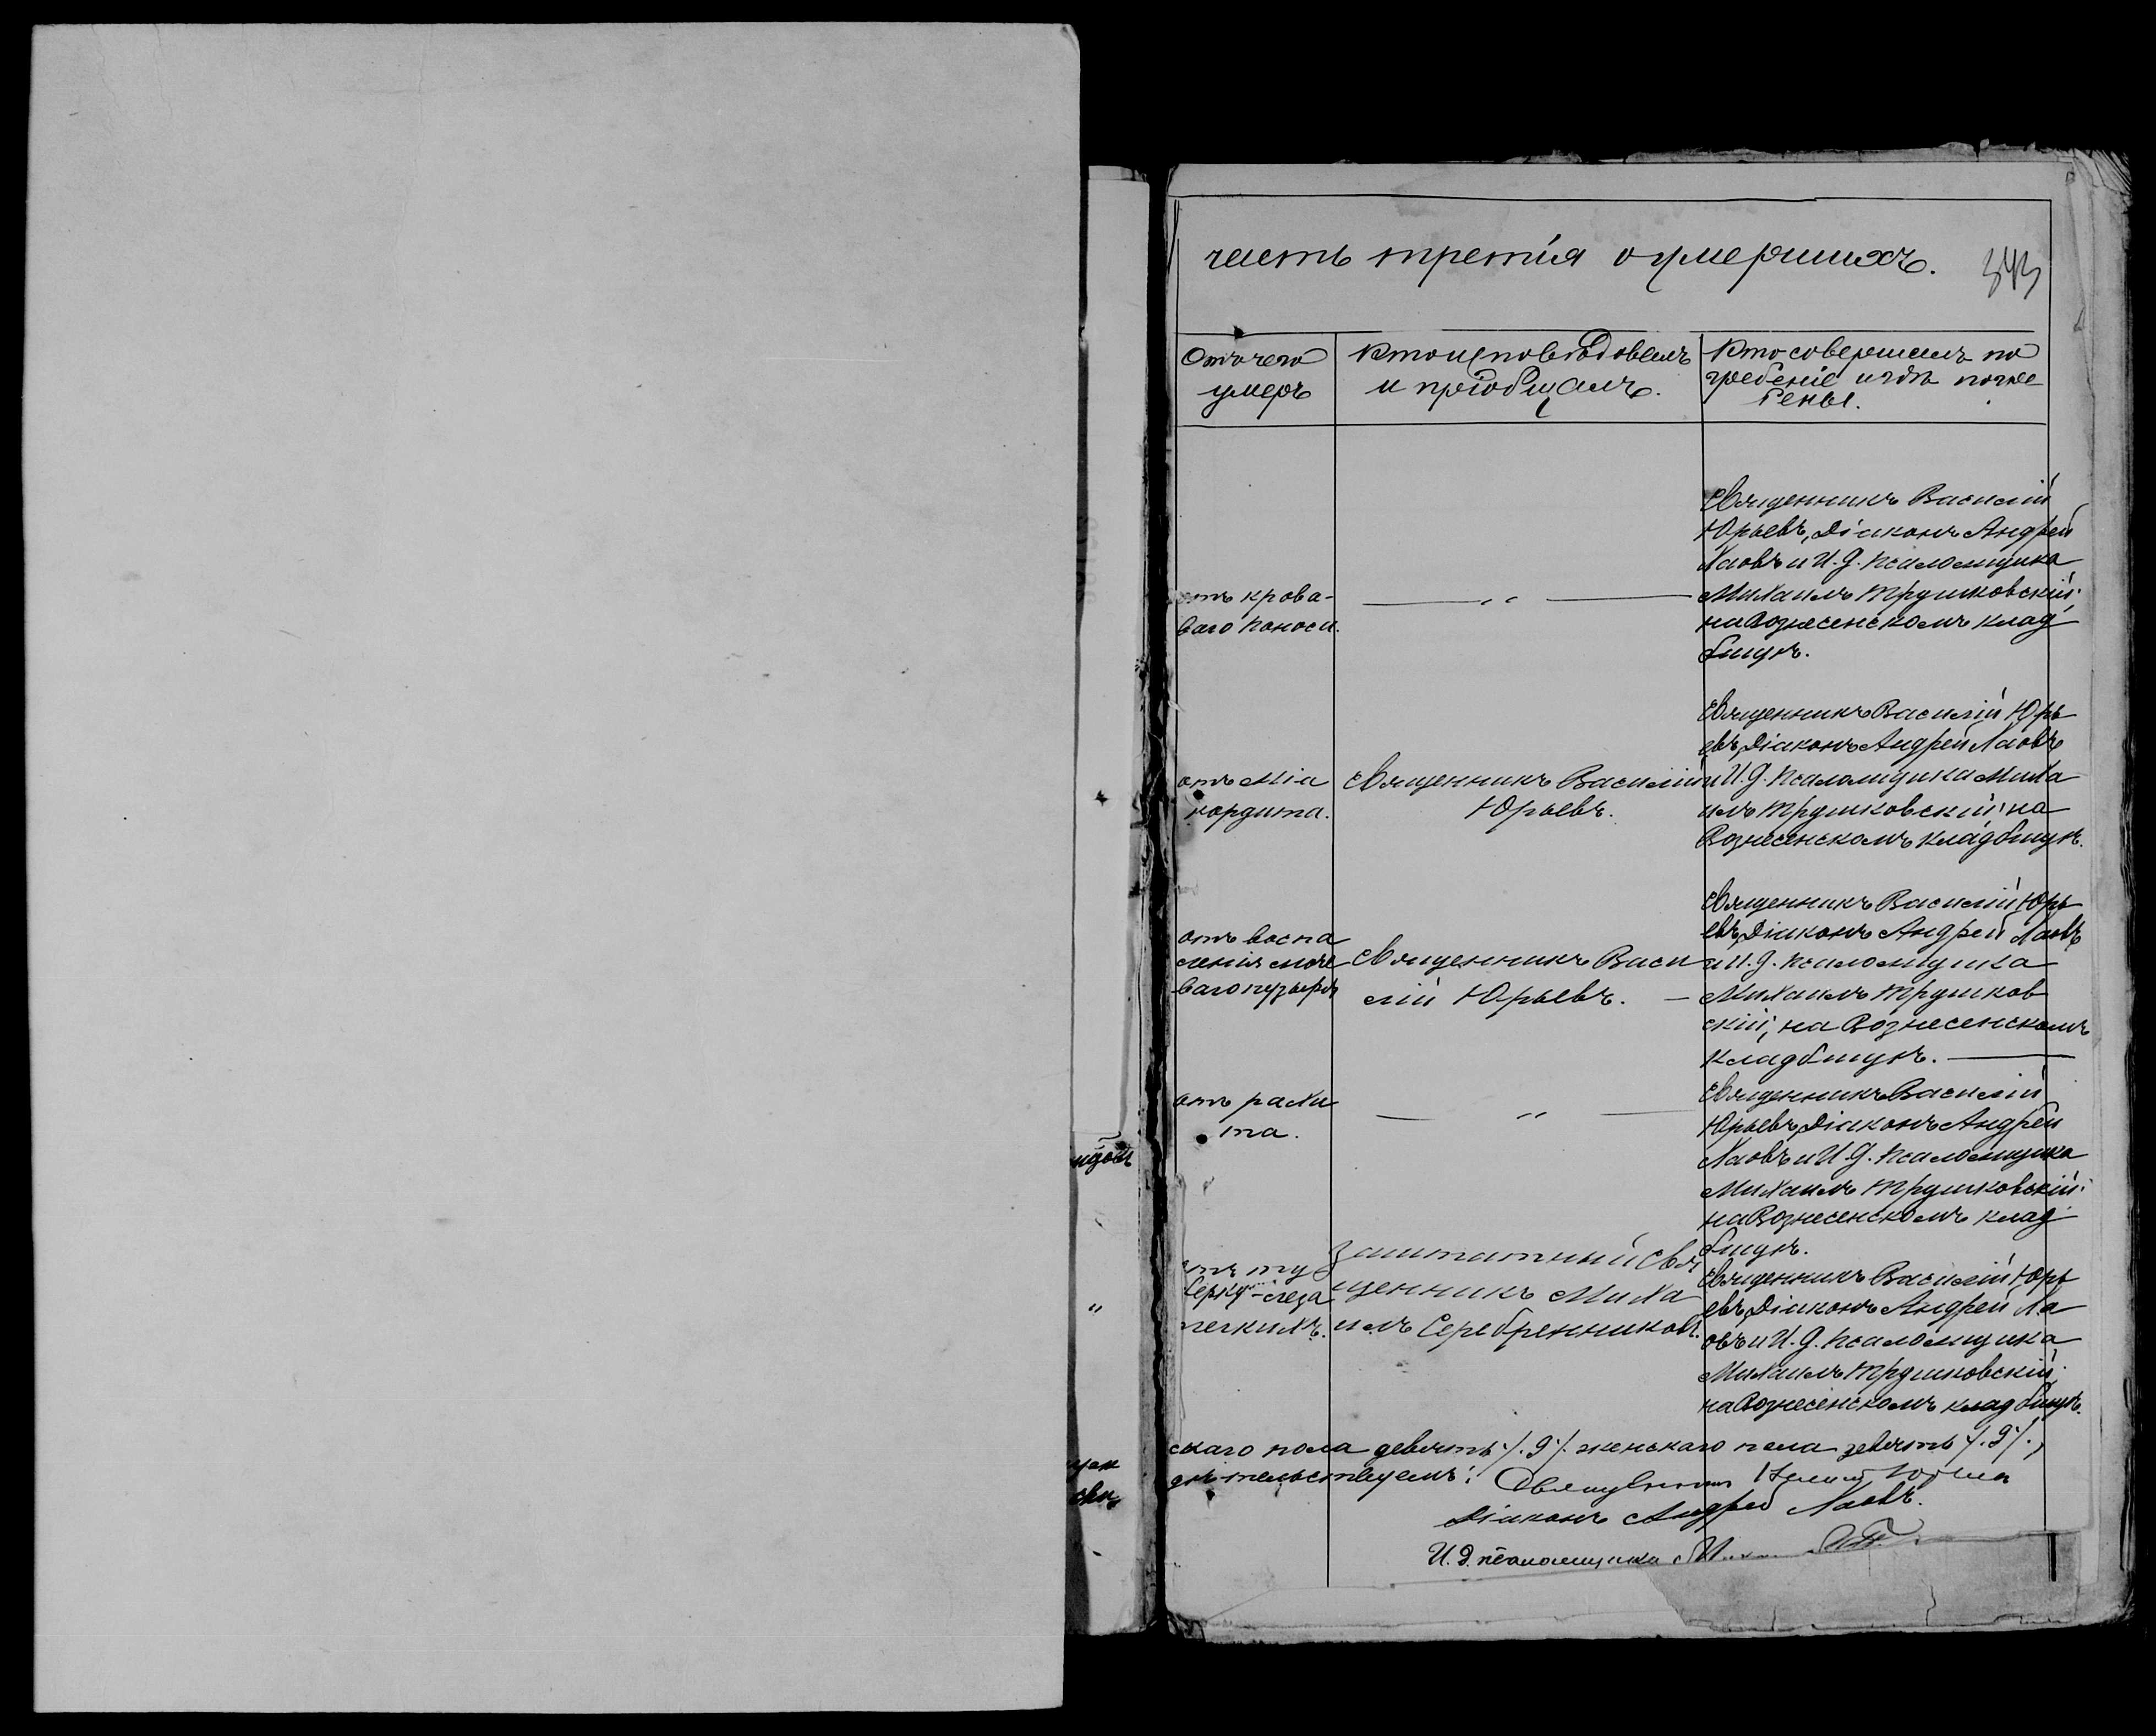 часть третія о умершихъ.
343
Отъ чего
умеръ
Кто исповѣдовалъ
и пріобщалъ.
Кто совершалъ по
гребеніе и гдѣ погре
бены.
отъ крова-
ваго поноса.
— " —
Священникъ Василій
Юрьевъ, Діаконъ Андрей
Лаовъ и И. д. псаломщика
Михаилъ Трушковскій;
на Вознесенскомъ клад
бищѣ.
отъ міа
кордита.
Священникъ Василій
Юрьевъ.
Священникъ Василій Юрь
евъ, Діаконъ Андрей Лаовъ
и И. д. псаломщика Миха
илъ Трушковскій; на
Вознесенскомъ кладбищѣ.
отъ воспа
ленія моче
ваго пузыря
Священникъ Васи
лій Юрьевъ. —
Священникъ Василій Юрь
евъ, Діаконъ Андрей Лаовъ
и И. д. псаломщика
Михаилъ Трушков
скій; на Вознесенскомъ
кладбищѣ. —
отъ рахи
та.
— " —
Священникъ Василій
Юрьевъ, Діаконъ Андрей
Лаовъ и И. д. псаломщика
Михаилъ Трушковскій;
на Вознесенскомъ клад
бищѣ.
отъ ту
берку-леза
легкихъ.
Заштатный Свя
щенникъ Миха
илъ Серебренниковъ.
Священникъ Василій Юрь
евъ, Діаконъ Андрей Ла
овъ и И. д. псаломщика
Михаилъ Трушковскій;
на Вознесенскомъ кладбищѣ.
скаго пола девять /. 9 /. женскаго пола девять /. 9 /.,
дѣтельствуемъ: Священникъ Василій Юрьев
Діаконъ Андрей Лаовъ.
И. д. псаломщика